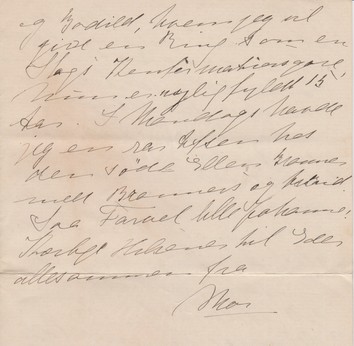 og Bodild, hvem jeg vil
give en Ring som en
Slags Konfirmationsgave
hun er nylig fyldt 15
Aar. I Mandags havde
jeg en rar Aften hos
den søde Ellen Branner
med Branners og
Saa Farvel lille Johanne,
Kærlige Hilsener til Eder
allesammen fra
Mor